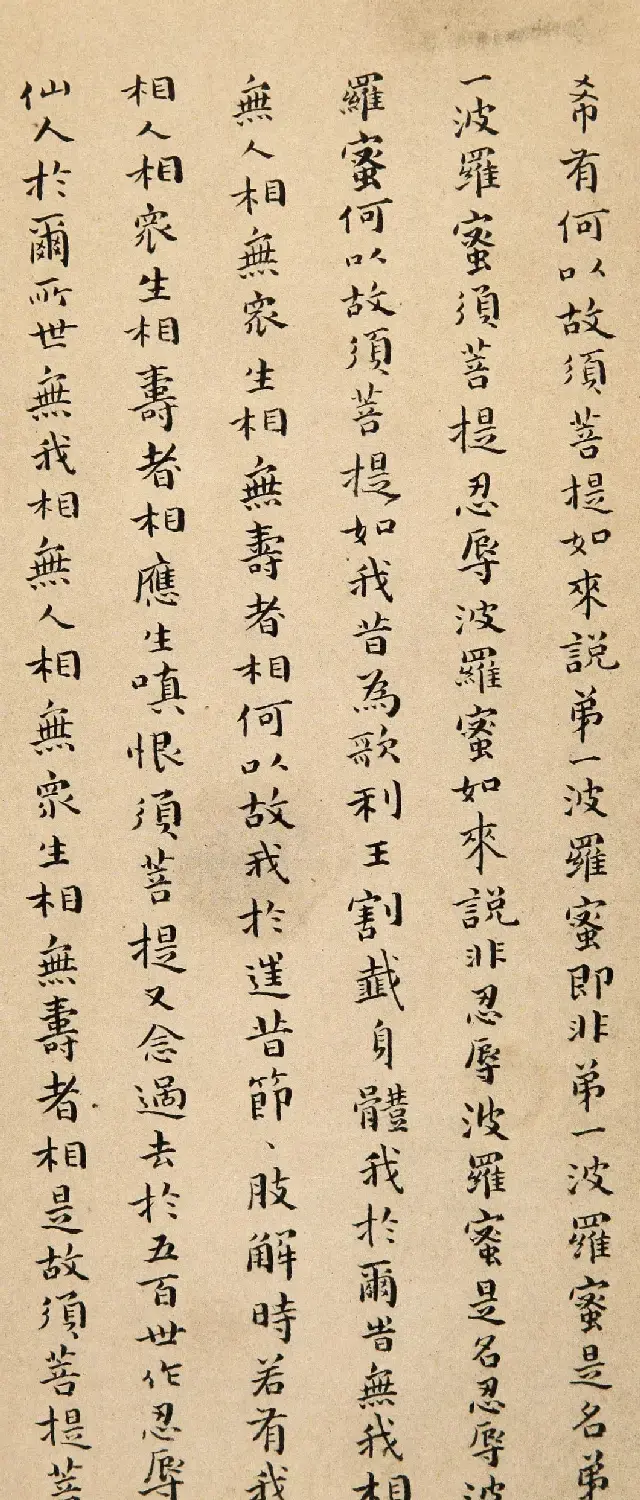 希有何以故須菩提如來說弟一波羅蜜即非弟一波羅蜜是名弟
一波羅蜜須菩提忍辱波羅蜜如來說非忍辱波羅蜜是名忍辱波
羅蜜何以故須菩提如我昔為歌利王割截身體我於爾昔無我相
無人相無衆生相無壽者相何以故我於進昔節、肢解時若有我
相人相衆生相壽者相應生嗔恨須菩提又念過去於五百世作忍辱
仙人於爾所世無我相無人相無衆生相無壽者相是故須菩提菩